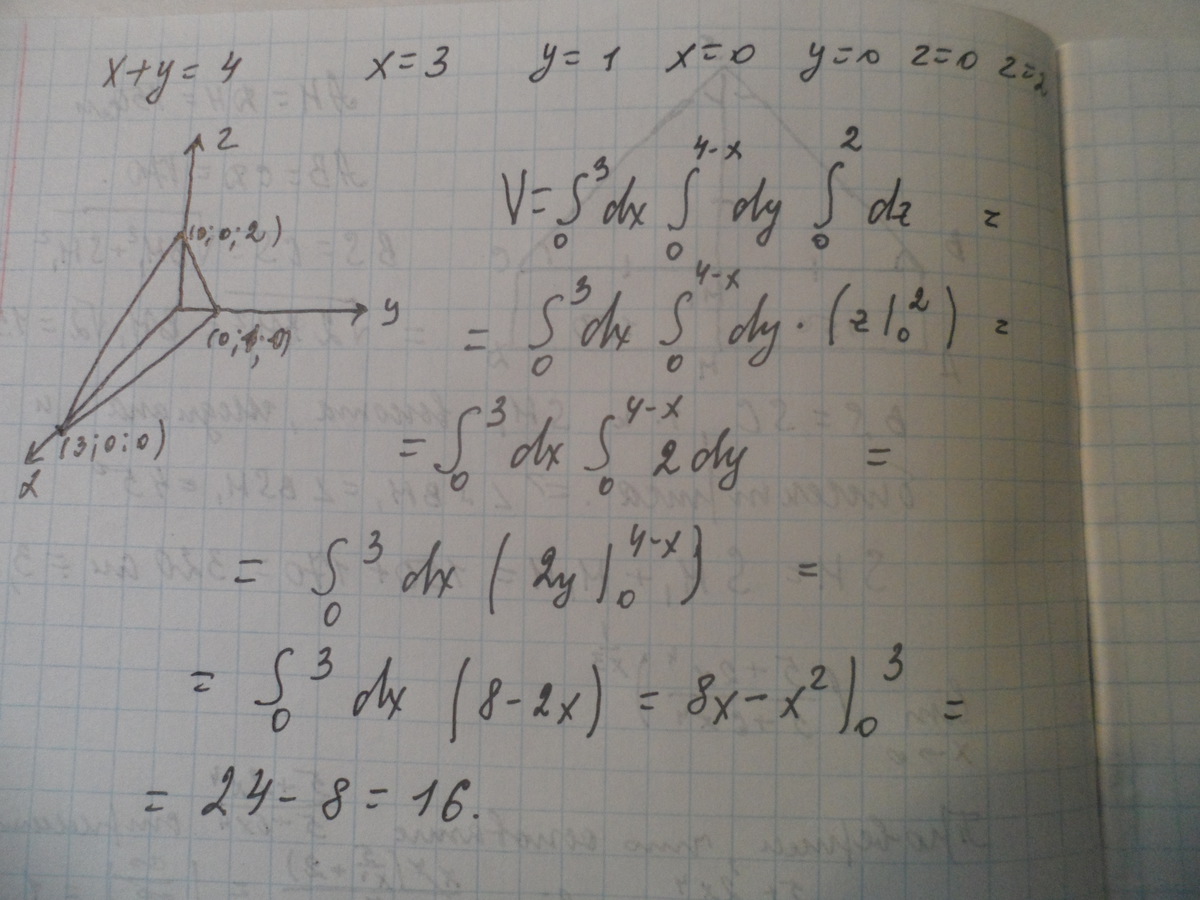 x+y=4 x=3 y=1 x=0 y=0 z=0 z=2
z
(0;0;2)
y
(3;0;0)
V=∫₀³dx ∫₀⁴⁻ˣ dy ∫₀² dz =
= ∫₀³dx ∫₀⁴⁻ˣ dy·(z|₀²) =
=∫₀³ dx ∫₀⁴⁻ˣ 2dy =
= ∫₀³ dx (2y|₀⁴⁻ˣ) =
= ∫₀³ dx (8-2x) = 8x-x²)₀³ =
= 24-8=16.